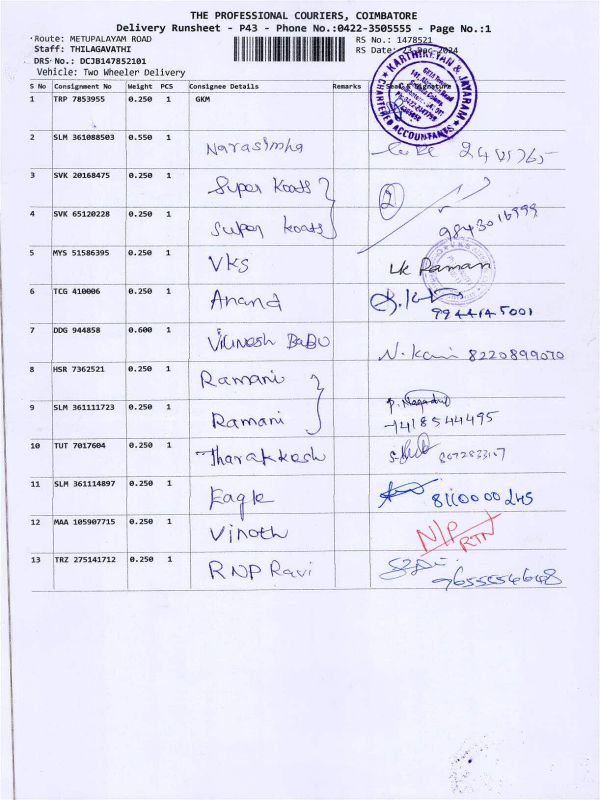 THE PROFESSIONAL COURIERS, COIMBATORE
Delivery Runsheet - P43 - Phone No.:0422-3505555 - Page No.:1
Route: METUPALAYAM ROAD RS No.: 1478521
Staff: THILAGAVATHI RS Date: 23-Dec-2024
DRS No.: DCJB147852101
Vehicle: Two Wheeler Delivery
S No Consignment No Weight PCS Consignee Details Remarks Seal & Signature
KARTHIKEYAN & JAYARAM
CHARTERED ACCOUNTANTS
1 TRP 7853955 0.250 1 GKM
2 SLM 361088503 0.550 1 Narasimha
3 SVK 20168475 0.250 1 Super Koats 2
4 SVK 65120228 0.250 1 Super Koats 9843016999
5 MYS 51586395 0.250 1 VKS Raman
6 TCG 410006 0.250 1 Anand
9944145001
7 DDG 944858 0.600 1 BABU N. Kani 8220899070
8 HSR 7362521 0.250 1 Ramani
9 SLM 361111723 0.250 1 Ramani 7418544495
10 TUT 7017604 0.250 1 Tharakkesh
11 SLM 361114897 0.250 1 Eagle 8110000245
12 MAA 105907715 0.250 1 Vinoth N/P
RTN
13 TRZ 275141712 0.250 1 RNP Ravi